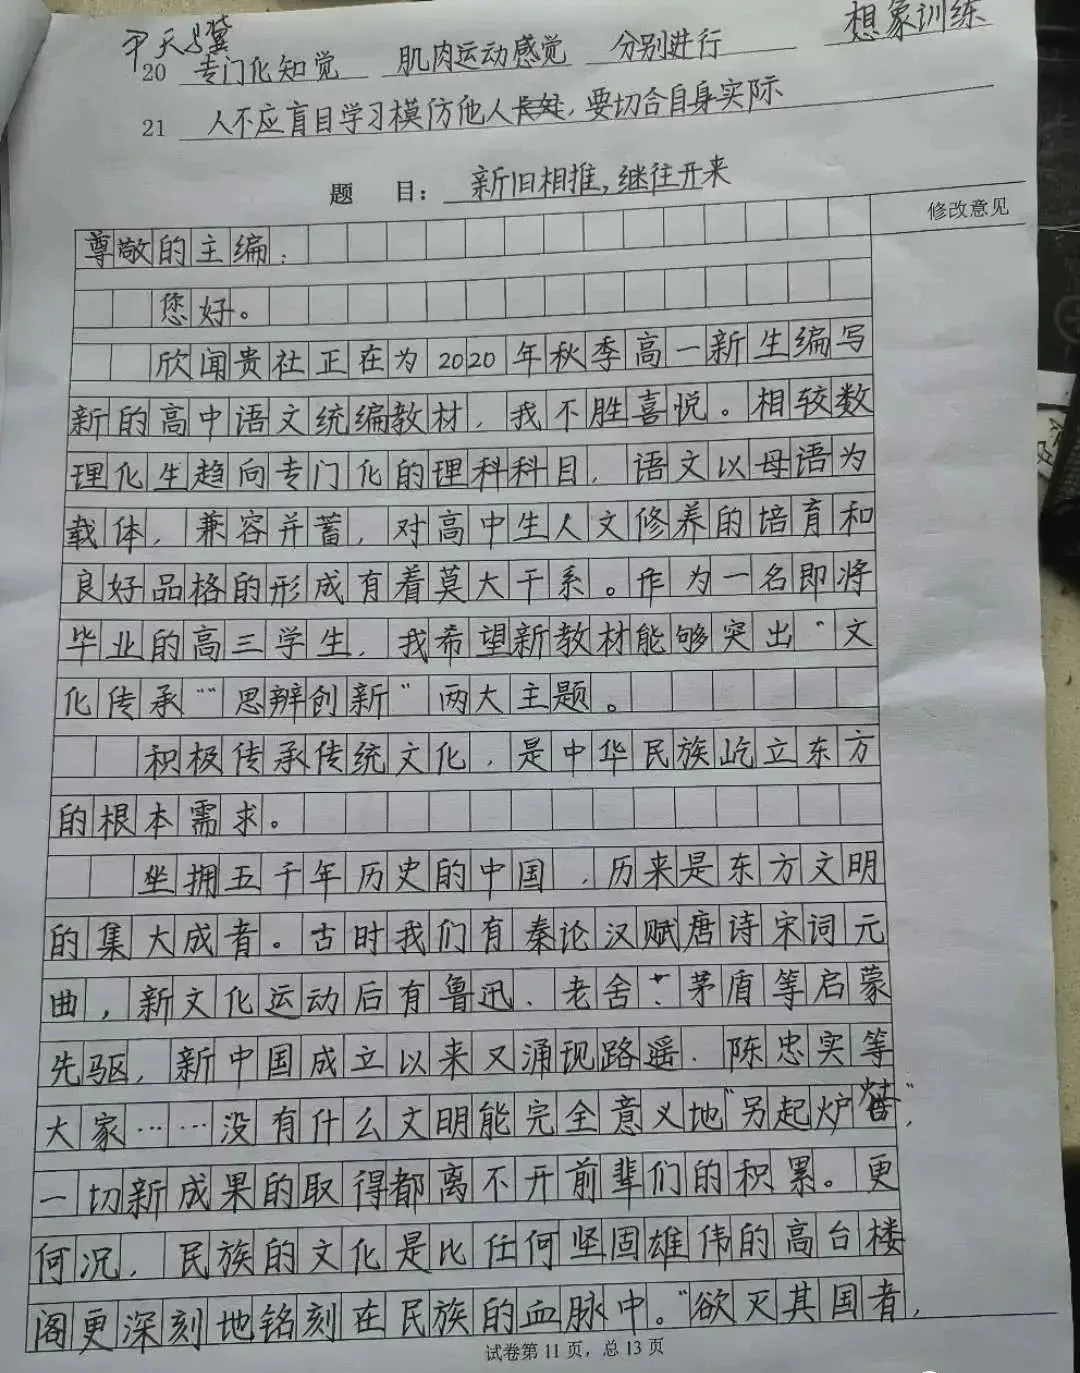 尹天冀
20 专门化知觉 肌肉运动感觉 分别进行 想象训练
21 人不应盲目学习模仿他人长处,要切合自身实际
题 目: 新旧相推,继往开来
修改意见
尊敬的主编:
您好。
欣闻贵社正在为2020年秋季高一新生编写
新的高中语文统编教材,我不胜喜悦。相较数
理化生趋向专门化的理科科目,语文以母语为
载体,兼容并蓄,对高中生人文修养的培育和
良好品格的形成有着莫大干系。作为一名即将
毕业的高三学生,我希望新教材能够突出“文
化传承”“思辨创新”两大主题。
积极传承传统文化,是中华民族屹立东方
的根本需求。
坐拥五千年历史的中国,历来是东方文明
的集大成者。古时我们有秦论汉赋唐诗宋词元
曲,新文化运动后有鲁迅、老舍、茅盾等启蒙
先驱,新中国成立以来又涌现路遥、陈忠实等
大家……没有什么文明能完全意义地“另起炉灶”,
一切新成果的取得都离不开前辈们的积累。更
何况,民族的文化是比任何坚固雄伟的高台楼
阁更深刻地铭刻在民族的血脉中。“欲灭其国者,
试卷第11页,总13页